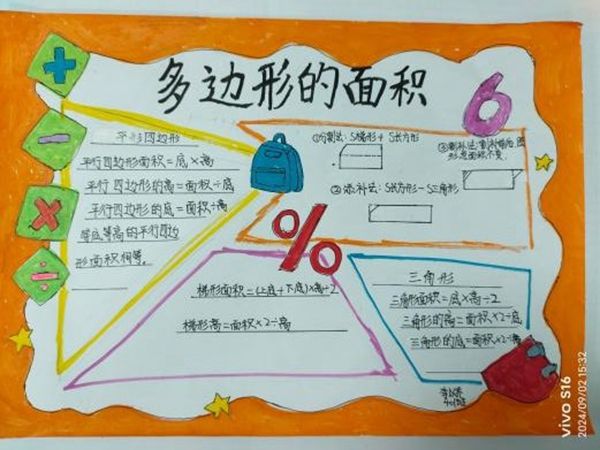 多边形的面积
6
平行四边形
平行四边形面积=底×高
平行四边形的高=面积÷底
平行四边形的底=面积÷高
等底等高的平行四边
形面积相等。
①分割法:S梯形+S长方形
②添补法:S长方形-S三角形
③割补法:割补前后,图
形总面积不变。
%
梯形面积=(上底+下底)×高÷2
梯形高=面积×2÷高
三角形
三角形面积=底×高÷2
三角形的高=面积×2÷底
三角形的底=面积×2÷高
vivo S16
2024/09/02 15:32